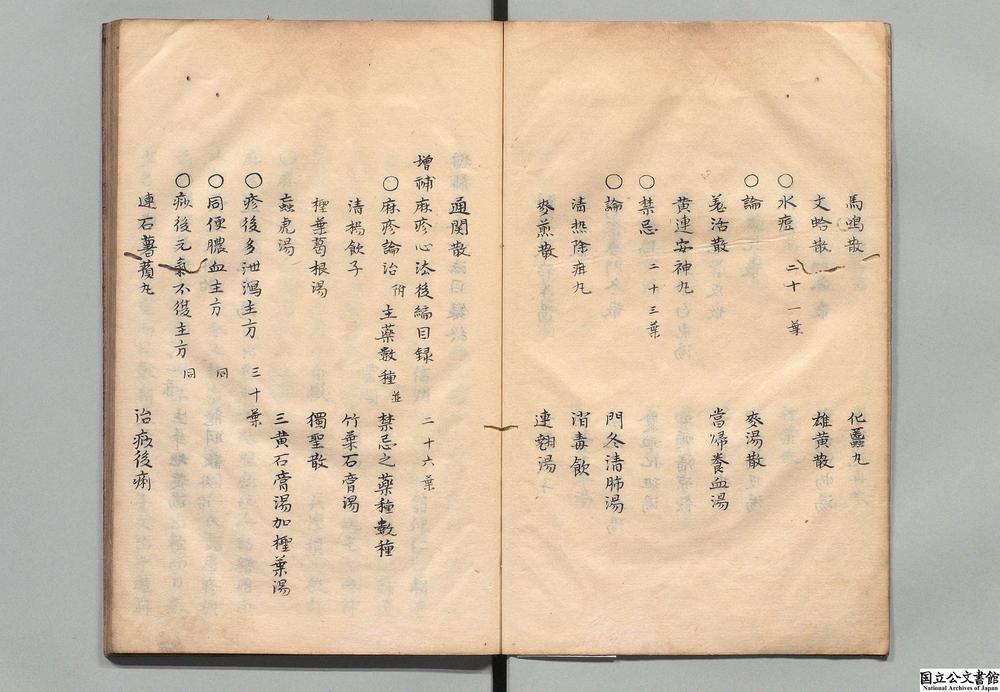 馬鳴散　化䘌丸
文略散　雄黄散
○水痘　二十一葉
○論　麥湯散
羗活散　當帰養血湯
黄連安神丸
○禁忌　二十三葉
○論　門冬清肺湯
清熱除疳丸　消毒飲
麥煎散　連翹湯
通関散
增補麻疹心法後編目録　二十六葉
○麻疹論治　附　主藥數種　並　禁忌之藥種數種
清揚飲子　竹葉石膏湯
檉葉葛根湯　獨聖散
蝱虎湯　三黄石膏湯加檉葉湯
○疹後多泄瀉主方　三十葉
○同便膿血主方　同
○痧後元氣不復主方　同
連石薯蕷丸　治痧後痢
国立公文書館
National Archives of Japan